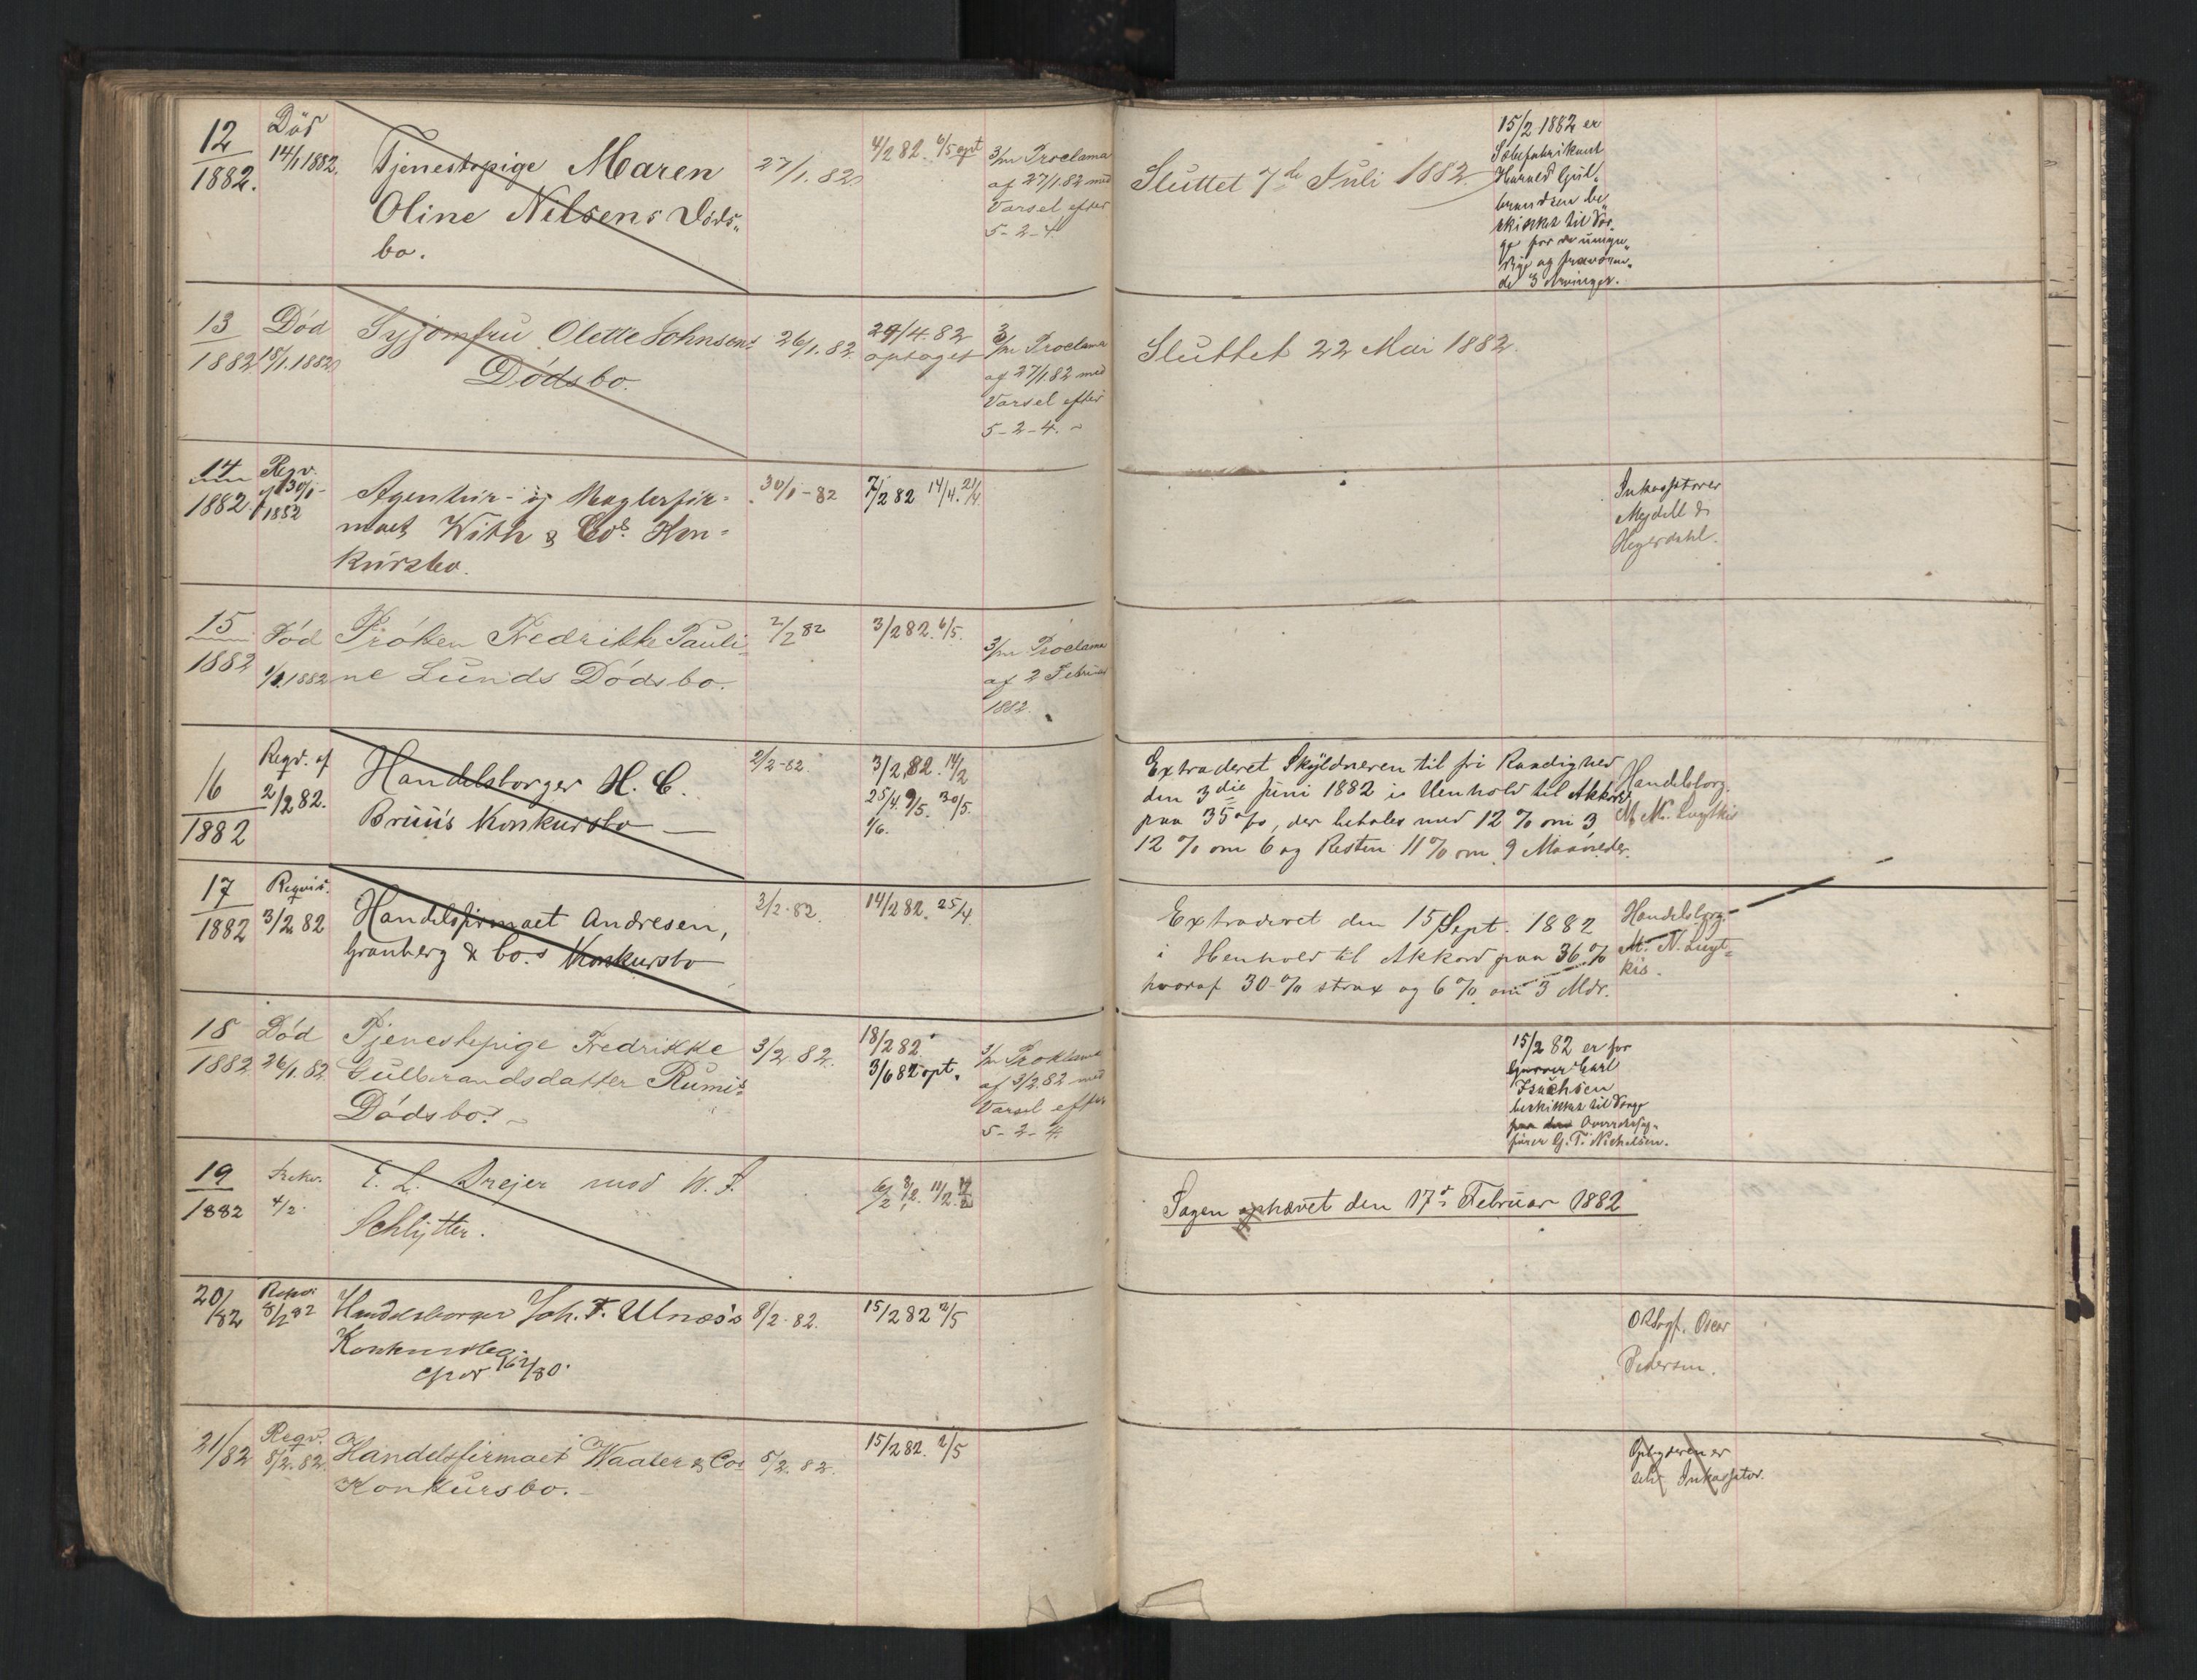 12
1882.
Död
14/1 1882.
Tjenestepige Maren
Oline Nilsens Döds„
bo.
27/1. 82
4/2 82. 6/5 opt
3/m Proclama
af 27/1.82 med
Varsel efter
5-2-4
Sluttet 7de Juli 1882.
15/2 1882 er
Sæbefabrikant
Harald Gul„
brandsen be„
skikket til Vær„
ge for de umyn„
dige og fraværen„
de 3 Arvinger.
13
1882
Död
18/1.1882
Syjomfru Olette Johnsens
Dödsbo.
26/1.82
29/4.82
optaget
3/m Proclama
af 27/1 82 med
Varsel efter
5-2-4.
Sluttet 22 Mai 1882.
14
1882
Reqv.
af 30/1-
1882
Agentur- og Mæglerfir-
maet With & Cos. Kon-
kursbo.
30/1-82
7/2 82 14/4. 21/4
Inkassatorer
Mejdell &
Hegerdahl.
15
1882
Död
1/2.1882
Fröken Fredrikke Pauli-
ne Lunds Dödsbo.
2/2 82
3/2 82. 6/5.
3/m Proclama
af 2 Februar
1882.
16
1882
Reqv. af
2/2 82.
Handelsborger H. C.
Bruus Konkursbo —
2/2-82.
3/2 82. 14/2
25/4. 9/5. 30/5.
1/6.
Extraderet Skyldneren til fri Raadighed
den 3die Juni 1882 i Henhold til Akkord
paa 35 %, der betales med 12 % om 3
12 % om 6 og Resten 11 % om 9 Maaneder.
Handelsborg.
M. N. Lugtkis
17
1882
Reqvis.
3/2 82
Handelsfirmaet Andresen,
Granberg & Co.s Konkursbo
3/2.82.
14/2 82. 25/4
Extraderet den 15 Sept. 1882
i Henhold til Akkord paa 36 %
hvoraf 30 % strax og 6 % om 3 Mdr.
Handelsborg.
M. N. Lugt-
kis.
18
1882
Död
26/1.82
Tjenestepige Fredrikke
Gulbrandsdatter Rumis
Dödsbo.
3/2.82.
18/2 82.
3/6 82 opt.
3/m Proklama
af 3/2.82 med
Varsel efter
5-2-4.
15/2 82 er for
Garver Carl
Isachsen
beskikket til Værge
Overretssag-
förer G. T. Nichelsen.
19
1882
4/2.
E. L. Drejer mod W. F.
Schlytter.
6/2 8/2. 11/2.
Sagen ophævet den 17de Februar 1882
20/82
8/2 82
Handelsborger Joh. F. Ulnæs's
Konkursbo.
8/2.82.
15/2 82 2/5
ORSagf. Oscar
Pedersen.
21/82
Reqv.
8/2.82.
Handelsfirmaet Waaler & Cos
Konkursbo.
8/2.82.
15/2 82. 2/5
Opbyderen er
selv Inkassator.